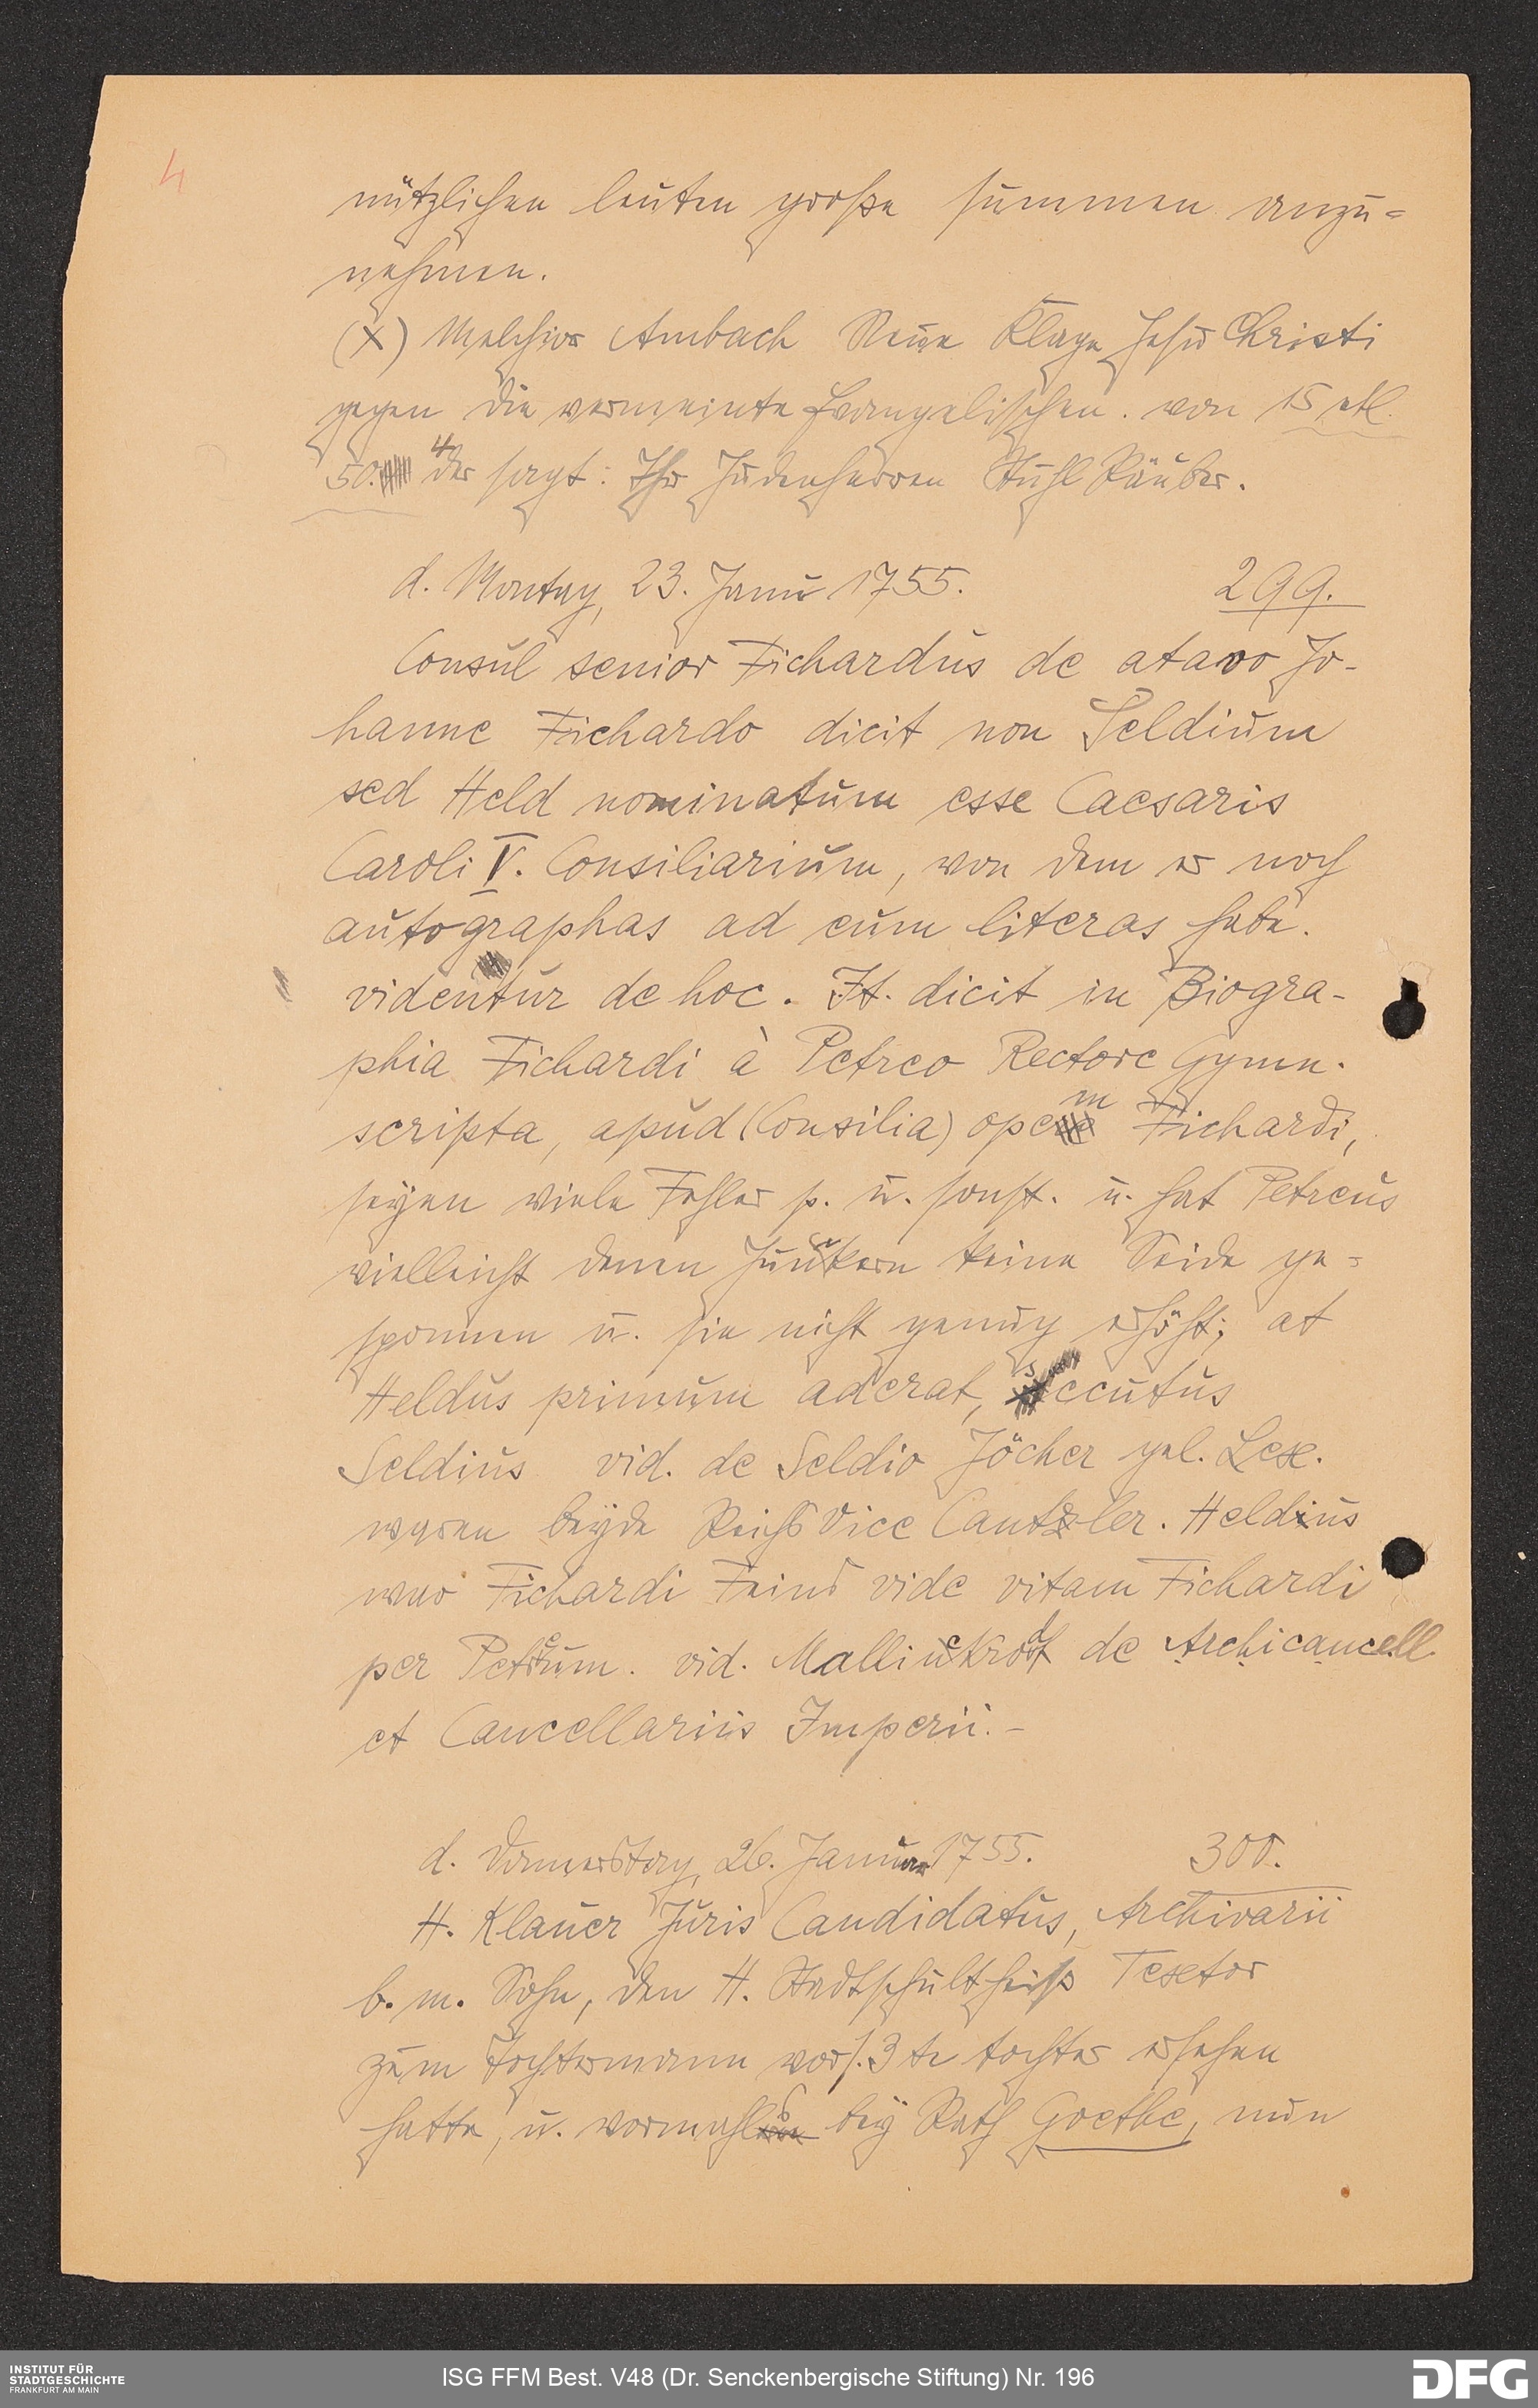 4
nützlichen leuten große summen anzu-
nehmen.
(X) Melchior Ambach Neue Klage Jesu Christi
gegen die vermeinte Evangelischen. von 15 etl.
50. 4 der sagt: Ihr Judenherren Stuhl Räuber.
d. Montag, 23. Janu 1755. 299.
Consul senior Fichardus de atavo Jo-
hanne Fichardo dicit non Seldium
sed Held nominatum esse Caesaris
Caroli V. Consiliarium, von dem er noch
autographas ad eum literas habe.
videntur de hoc. It. dicit in Biogra-
phia Fichardi à Petreo Rectore Gymn.
scripta, apud (Consilia) opem Fichardi,
seyen viele Fehler p. u. sonst. u. hat Petreus
vielleicht denen Junckern keine Seide ge-
sponnen u. sie nicht genug erhöht; at
Heldus primum aderat, secutus
Seldius vid. de Seldio Jöcher gel. Lex.
waren beyde Reichs Vice Cantzler. Heldius
war Fichardi Feind vide vitam Fichardi
per Petreum. vid. Mallinckrodt de Archicancell
et Cancellariis Imperii. -
d. Donnerstag, 26. Januar 1755. 300.
H. Klauer Juris Candidatus, Archivarii
b. m. Sohn, den H. Stadtschultheiß Textor
zum Tochtermann vor s. 3 te tochter ersehen
hatte, u. vormahls bey Rath Goethe, nun
INSTITUT FÜR
STADTGESCHICHTE
FRANKFURT AM MAIN
ISG FFM Best. V48 (Dr. Senckenbergische Stiftung) Nr. 196
DFG